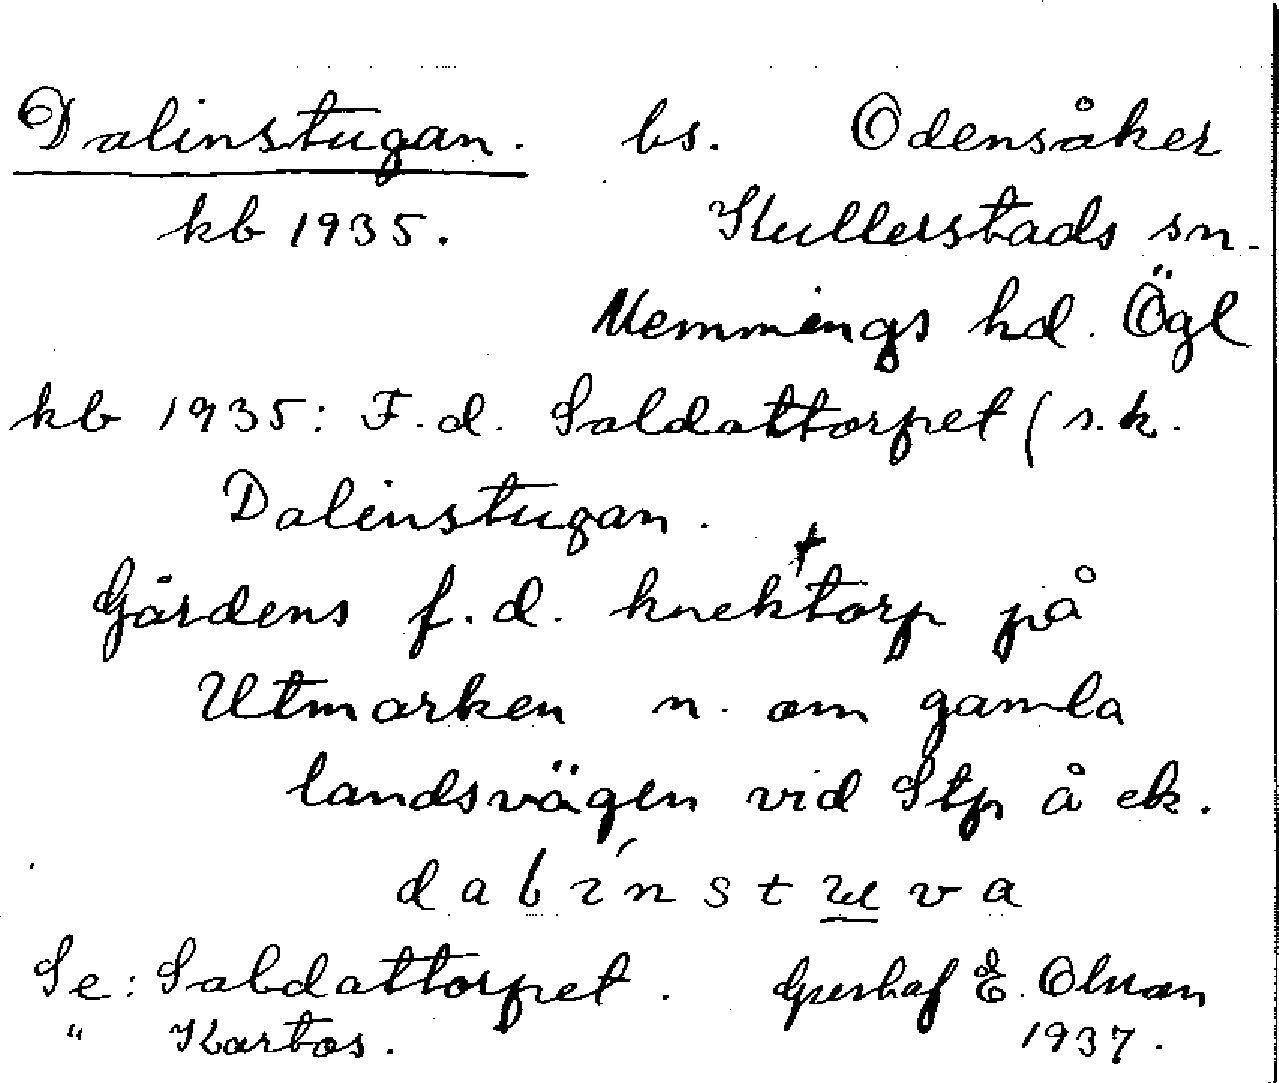 Dalinstugan. bs. Odensåker
kb 1935. Kullerstads sn.
Memmings hd. Ögl
kb 1935: F.d. Soldattorpet (s.k.
Dalinstugan.
Gårdens f.d. knektorp på
Utmarken n. om gamla
landsvägen vid Stp å ek.
dalínstuva
Se: Soldattorpet. Gustaf E. Olsson
" Kartos. 1937.